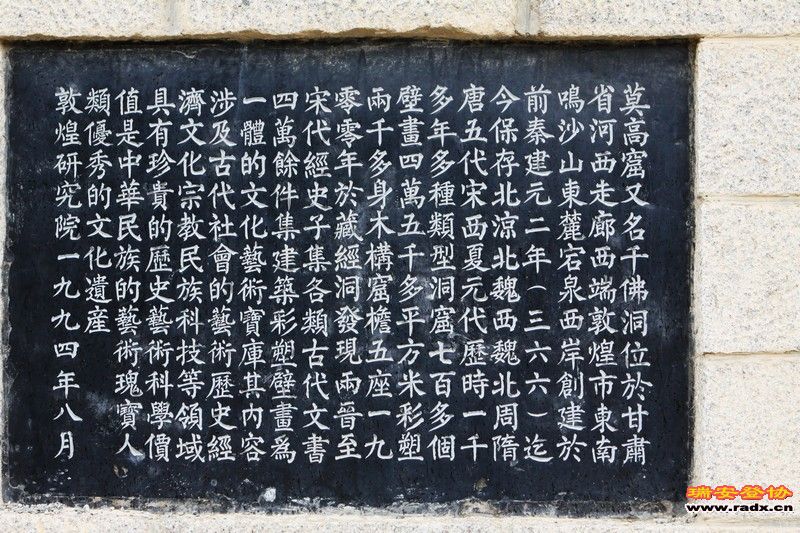 莫高窟又名千佛洞位於甘肅
省河西走廊西端敦煌市東南
鳴沙山東麓宕泉西岸創建於
前秦建元二年（三六六）迄
今保存北涼北魏西魏北周隋
唐五代宋西夏元代歷時一千
多年多種類型洞窟七百多個
壁畫四萬五千多平方米彩塑
兩千多身木構窟檐五座一九
零零年於藏經洞發現兩晉至
宋代經史子集各類古代文書
四萬餘件集建築彩塑壁畫為
一體的文化藝術寶庫其內容
涉及古代社會的藝術歷史經
濟文化宗教民族科技等領域
具有珍貴的歷史藝術科學價
值是中華民族的藝術瑰寶人
類優秀的文化遺產
敦煌研究院一九九四年八月
瑞安登协
www.radx.cn